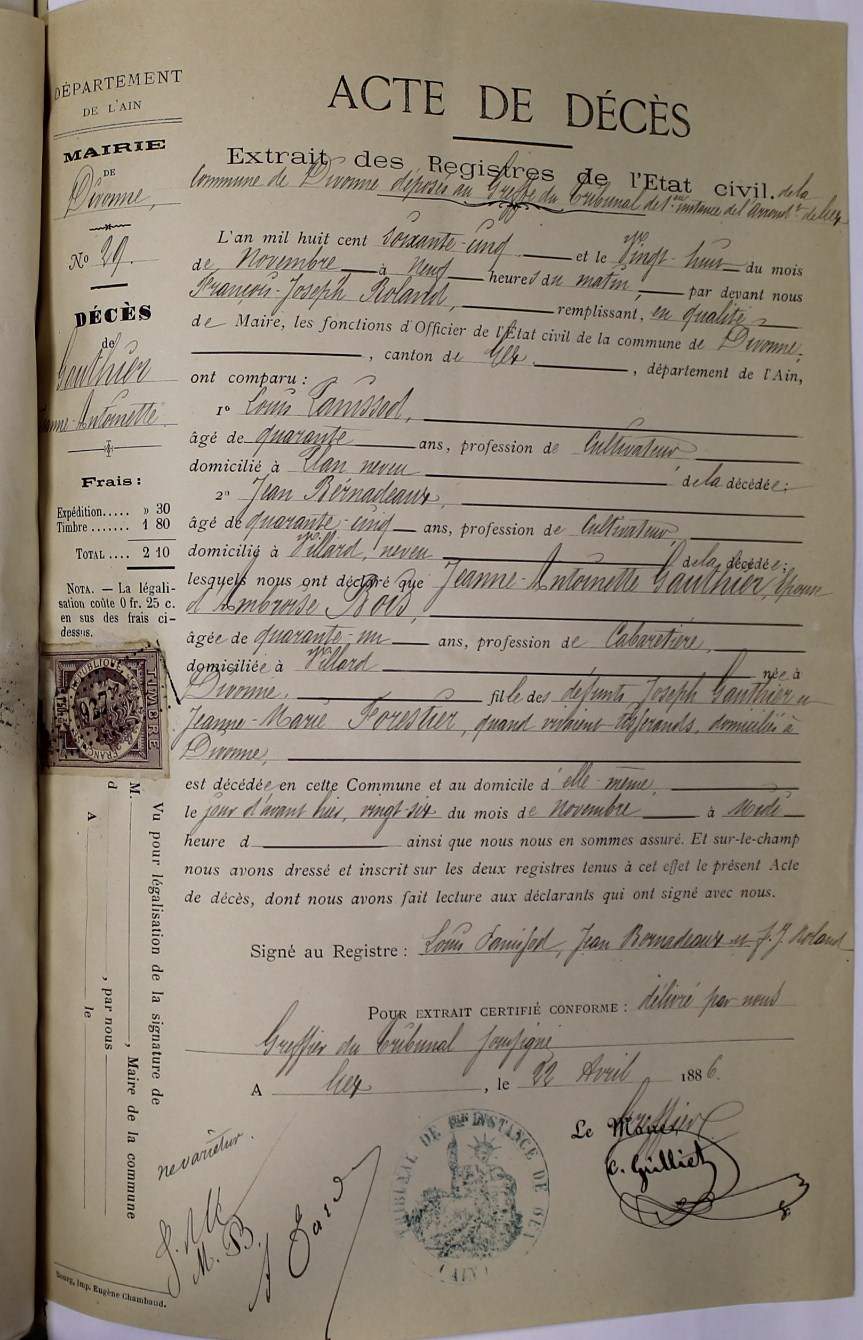 DÉPARTEMENT
DE L'AIN
MAIRIE
DE
Divonne,
No 29.
DÉCÈS
de
Gauthier
Jeanne-Antoinette.
Frais :
Expédition..... » 30
Timbre....... 1 80
TOTAL.... 2 10
NOTA. — La légali-
sation coûte 0 fr. 25 c.
en sus des frais ci-
dessus.
TIMBRE
ACTE DE DÉCÈS
Extrait des Registres de l'Etat civil. de la
Commune de Divonne déposés au Greffe du Tribunal de 1re instance de l'arrond.t de Gex
L'an mil huit cent soixante-cinq et le Vingt-huit du mois
de Novembre à neuf heures du matin, par devant nous
François-Joseph Roland, remplissant, en qualité
de Maire, les fonctions d'Officier de l'État civil de la commune de Divonne,
, canton de Gex. , département de l'Ain,
ont comparu :
1o Louis Panissod,
âgé de quarante ans, profession de Cultivateur
domicilié à Plan neveu de la décédée;
2o Jean Bernadeaux,
âgé de quarante-cinq ans, profession de Cultivateur,
domicilié à Villard, neveu de la décédée;
lesquels nous ont déclaré que Jeanne-Antoinette Gauthier, épouse
d'Ambroise Bois,
âgée de quarante-un ans, profession de Cabaretière,
domiciliée à Villard née à
Divonne, fille des défunts Joseph Gauthier et
Jeanne-Marie Forestier, quand vivaient domiciliés à
Divonne,
est décédée en cette Commune et au domicile d'elle-même,
le jour d'avant hier, vingt-six du mois de novembre à Midi
heure d ainsi que nous nous en sommes assuré. Et sur-le-champ
nous avons dressé et inscrit sur les deux registres tenus à cet effet le présent Acte
de décès, dont nous avons fait lecture aux déclarants qui ont signé avec nous.
Signé au Registre : Louis Panissod, Jean Bernadeaux et F. J. Roland
POUR EXTRAIT CERTIFIÉ CONFORME : délivré par nous
Greffier du Tribunal soussigné
A Gex , le 22 Avril 1886.
Le Maire Greffier
C. Gulliet
TRIBUNAL DE 1RE INSTANCE DE GEX
(AIN)
Vu pour légalisation de la signature de
M. , Maire de la commune
d , par nous
A le
ne varietur.
M. B.
Bourg, Imp. Eugène Chambaud.